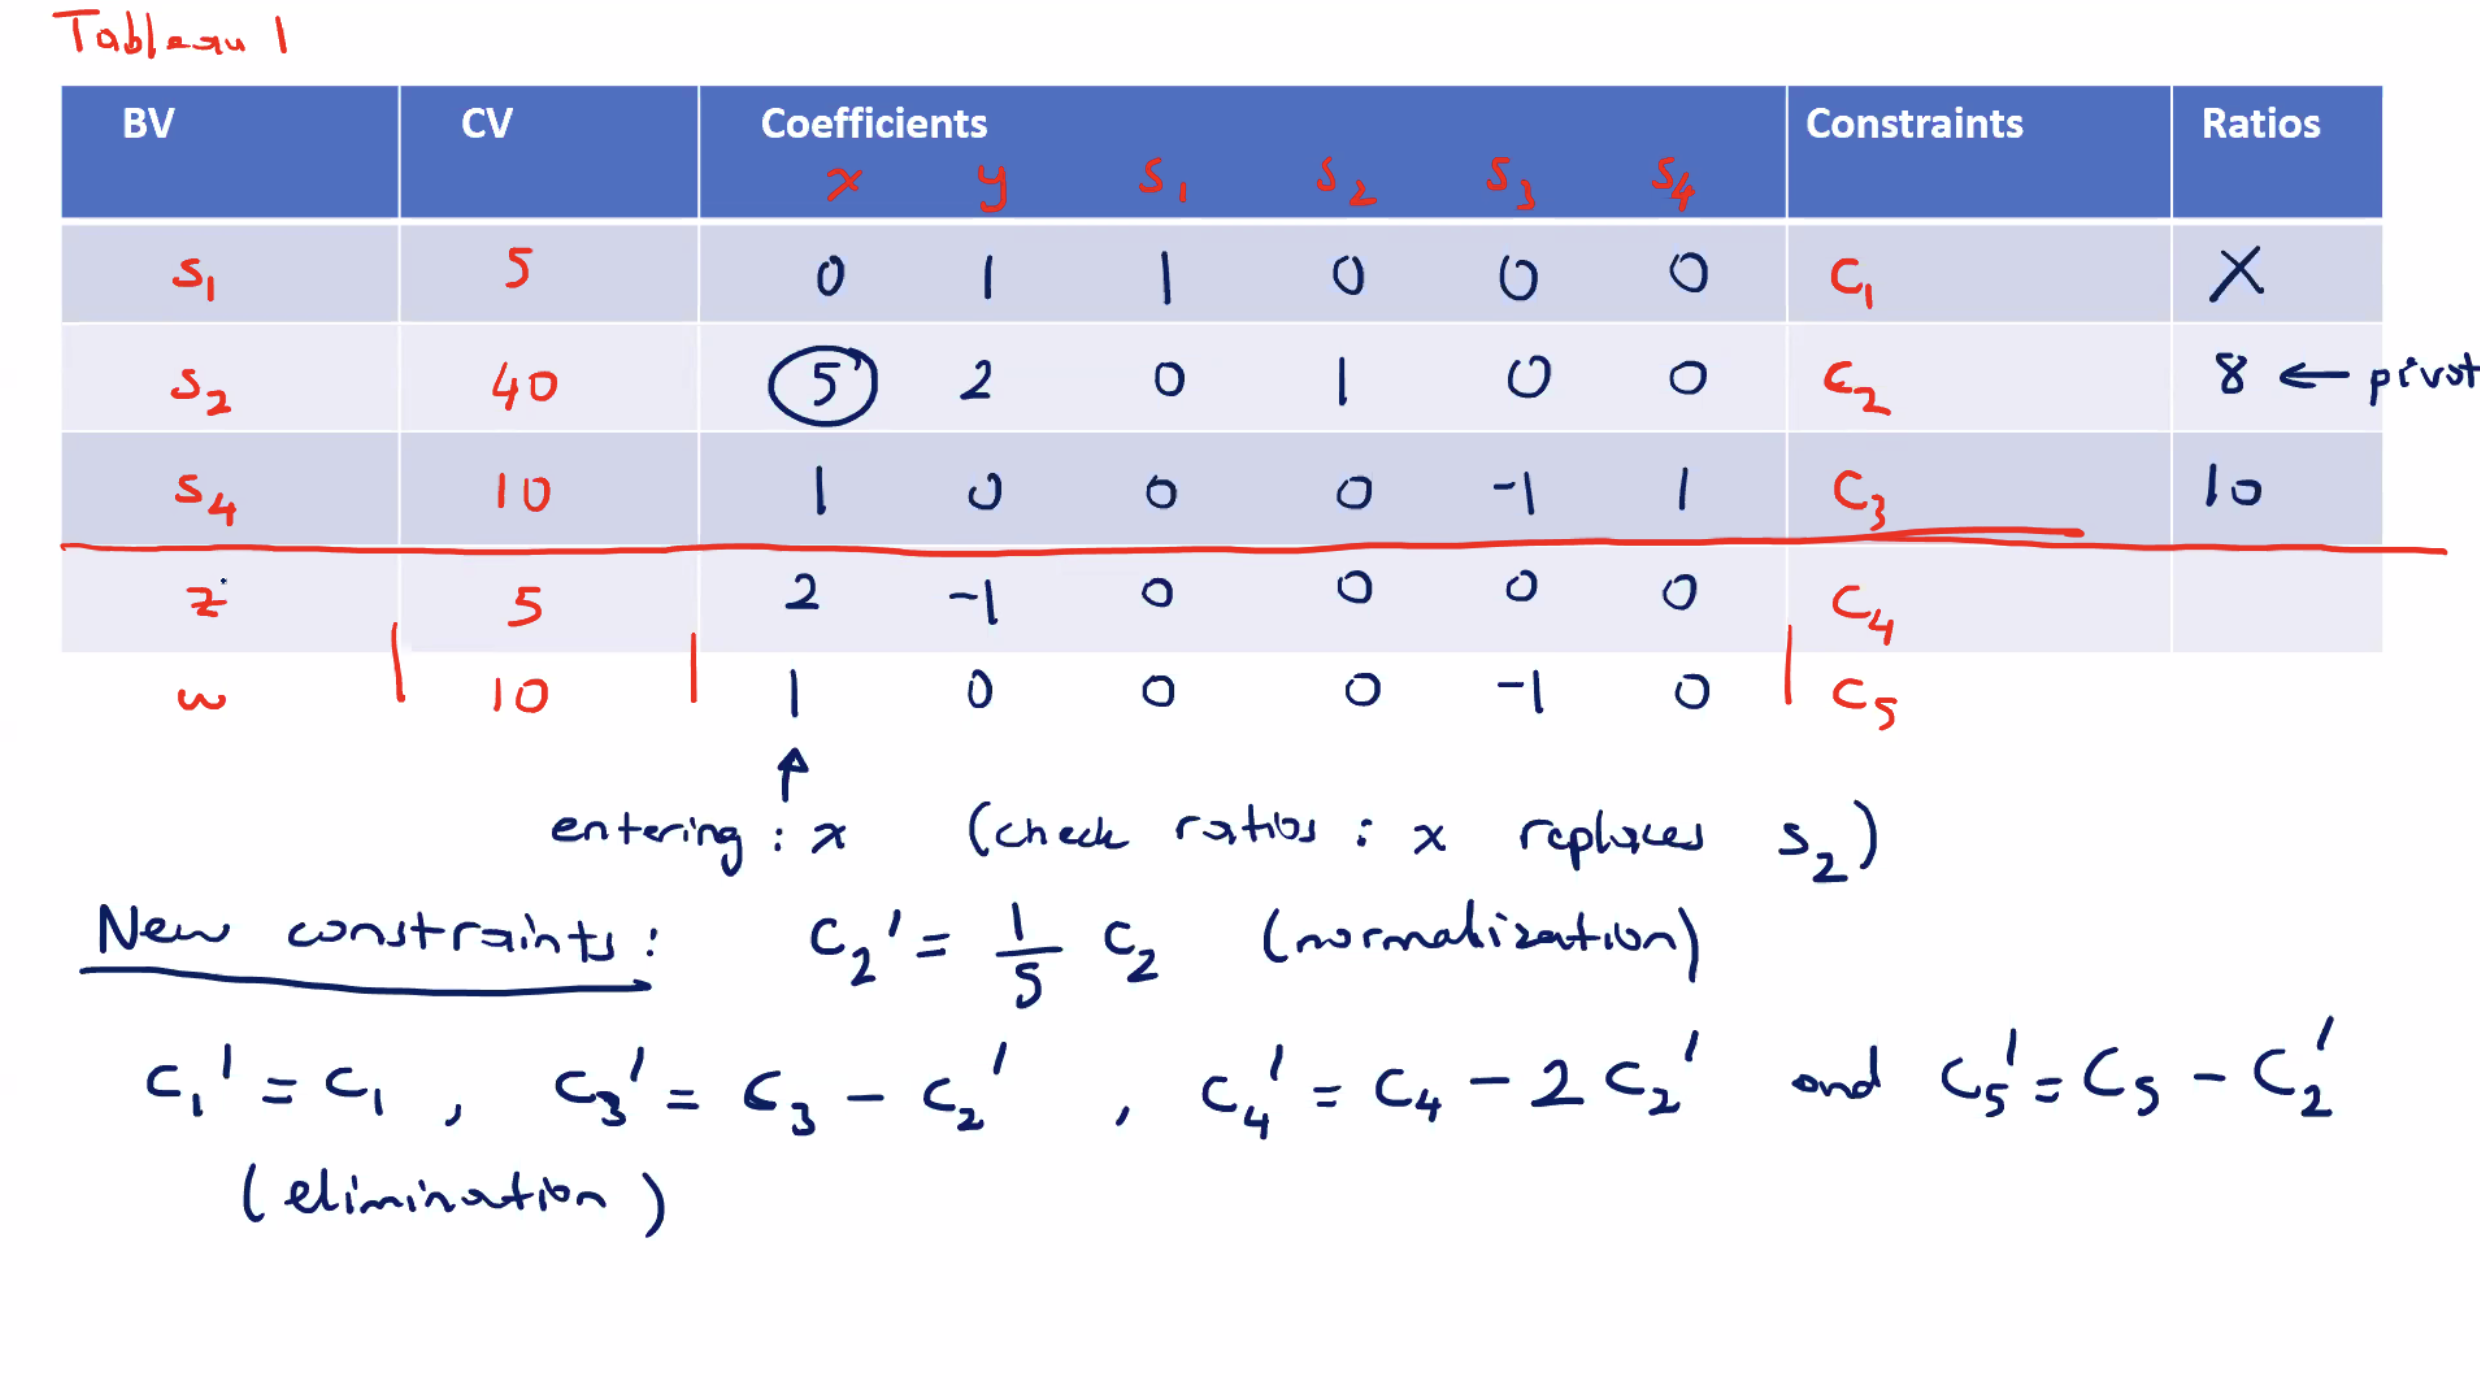 Tableau 1
BV CV Coefficients Constraints Ratios
x y s₁ s₂ s₃ s₄
s₁ 5 0 1 1 0 0 0 C₁ X
s₂ 40 5 2 0 1 0 0 C₂ 8 ← pivot
s₄ 10 1 0 0 0 -1 1 C₃ 10
z 5 2 -1 0 0 0 0 C₄
w 10 1 0 0 0 -1 0 C₅
entering : x (check ratios : x replaces s₂)
New constraints : C₂' = 1/5 C₂ (normalization)
C₁' = C₁ , C₃' = C₃ - C₂' , C₄' = C₄ - 2 C₂' and C₅' = C₅ - C₂'
(elimination)